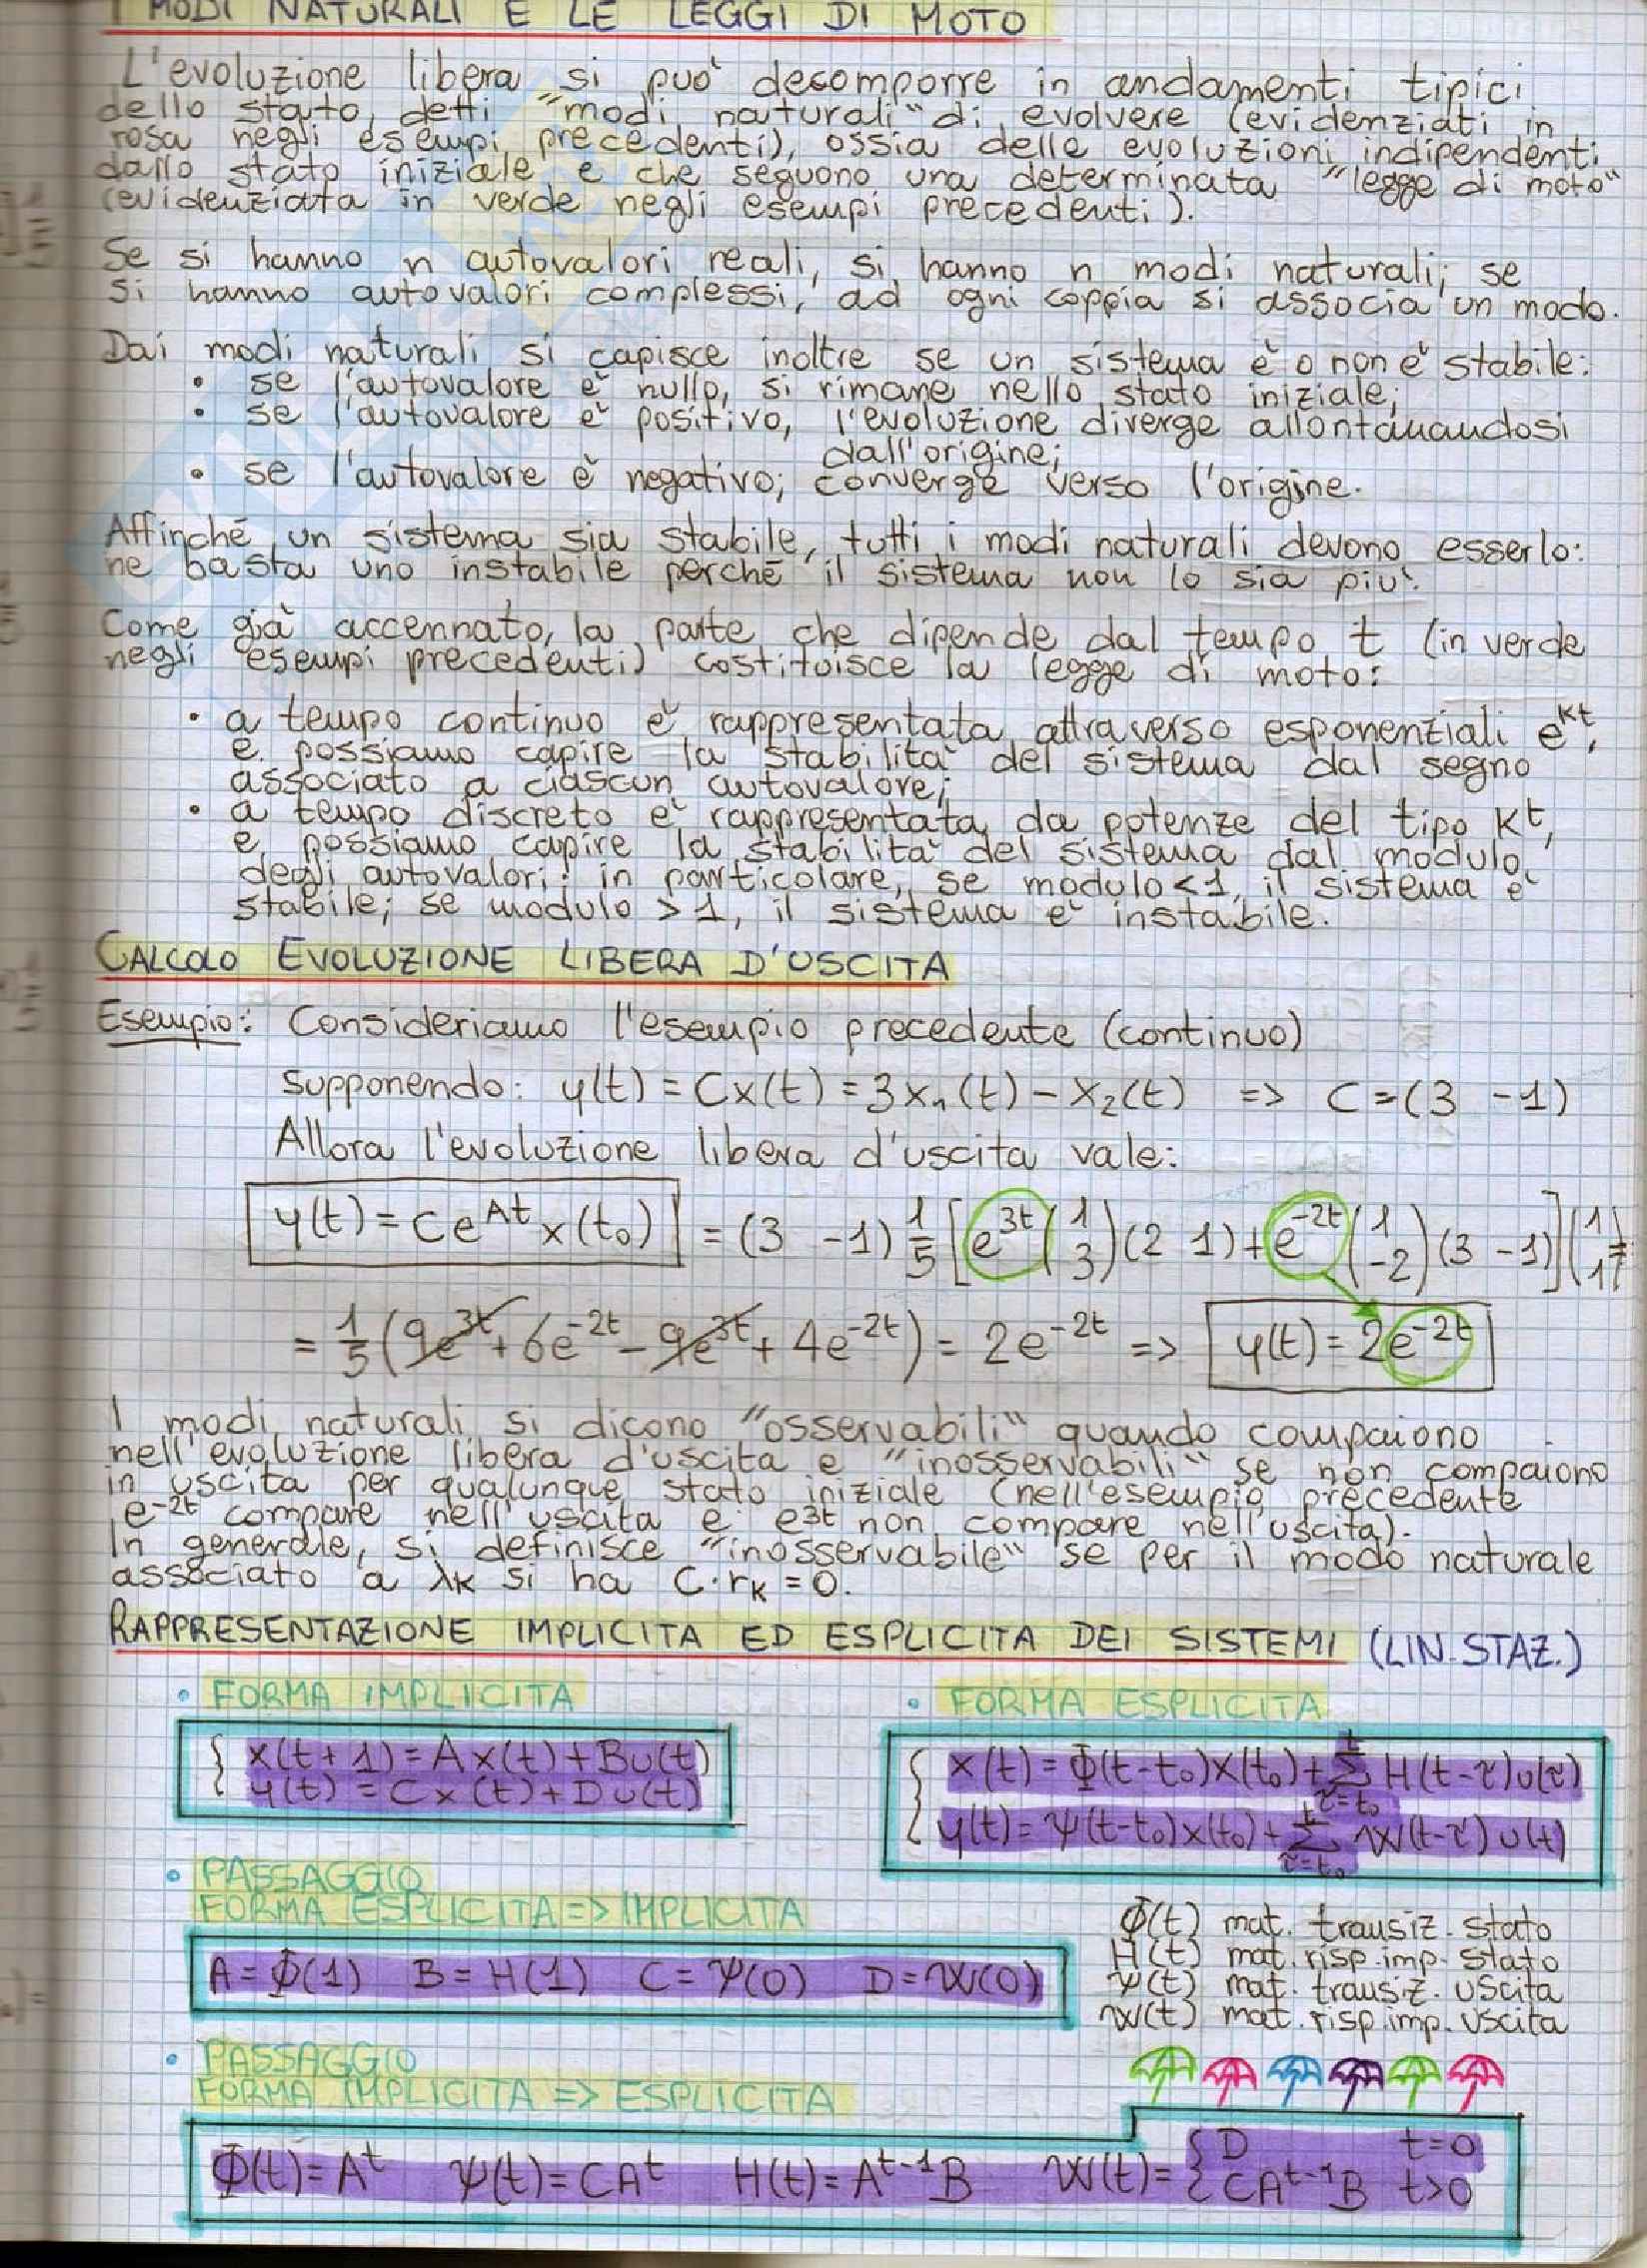 I MODI NATURALI E LE LEGGI DI MOTO
L'evoluzione libera si può decomporre in andamenti tipici
dello stato, detti "modi naturali" di evolvere (evidenziati in
rosa negli esempi precedenti), ossia delle evoluzioni indipendenti
dallo stato iniziale e che seguono una determinata "legge di moto"
(evidenziata in verde negli esempi precedenti).
Se si hanno n autovalori reali, si hanno n modi naturali; se
si hanno autovalori complessi, ad ogni coppia si associa un modo.
Dai modi naturali si capisce inoltre se un sistema è o non è stabile:
• se l'autovalore è nullo, si rimane nello stato iniziale;
• se l'autovalore è positivo, l'evoluzione diverge allontanandosi
dall'origine;
• se l'autovalore è negativo; converge verso l'origine.
Affinché un sistema sia stabile, tutti i modi naturali devono esserlo:
ne basta uno instabile perché il sistema non lo sia più.
Come già accennato, la parte che dipende dal tempo t (in verde
negli esempi precedenti) costituisce la legge di moto:
• a tempo continuo è rappresentata attraverso esponenziali e^kt,
e possiamo capire la stabilità del sistema dal segno
associato a ciascun autovalore;
• a tempo discreto è rappresentata da potenze del tipo k^t,
e possiamo capire la stabilità del sistema dal modulo
degli autovalori; in particolare, se modulo <1, il sistema è
stabile; se modulo >1, il sistema è instabile.
CALCOLO EVOLUZIONE LIBERA D'USCITA
Esempio: Consideriamo l'esempio precedente (continuo)
supponendo: y(t) = Cx(t) = 3x₁(t) - x₂(t) => C = (3 -1)
Allora l'evoluzione libera d'uscita vale:
y(t) = Ce^At x(t₀) = (3 -1) 1/5 [e^3t (1 3)(2 1) + e^-2t (1 -2)(3 -1)] (1 1) =
= 1/5 (9e^3t + 6e^-2t - 9e^3t + 4e^-2t) = 2e^-2t => y(t) = 2e^-2t
I modi naturali si dicono "osservabili" quando compaiono
nell'evoluzione libera d'uscita e "inosservabili" se non compaiono
in uscita per qualunque stato iniziale (nell'esempio precedente
e^-2t compare nell'uscita e e^3t non compare nell'uscita).
In generale, si definisce "inosservabile" se per il modo naturale
associato a λk si ha C·rk = 0.
RAPPRESENTAZIONE IMPLICITA ED ESPLICITA DEI SISTEMI (LIN. STAZ.)
• FORMA IMPLICITA
{ x(t+1) = Ax(t) + Bu(t)
y(t) = Cx(t) + Du(t)
• FORMA ESPLICITA
{ x(t) = Φ(t-t₀)x(t₀) + Σ_{τ=t₀}^{t} H(t-τ)u(τ)
y(t) = Ψ(t-t₀)x(t₀) + Σ_{τ=t₀}^{t} W(t-τ)u(t)
• PASSAGGIO
FORMA ESPLICITA => IMPLICITA
A = Φ(1) B = H(1) C = Ψ(0) D = W(0)
Φ(t) mat. transiz. stato
H(t) mat. risp. imp. stato
Ψ(t) mat. transiz. uscita
W(t) mat. risp. imp. uscita
• PASSAGGIO
FORMA IMPLICITA => ESPLICITA
Φ(t) = A^t Ψ(t) = CA^t H(t) = A^t-1 B W(t) = { D t=0
CA^t-1 B t>0